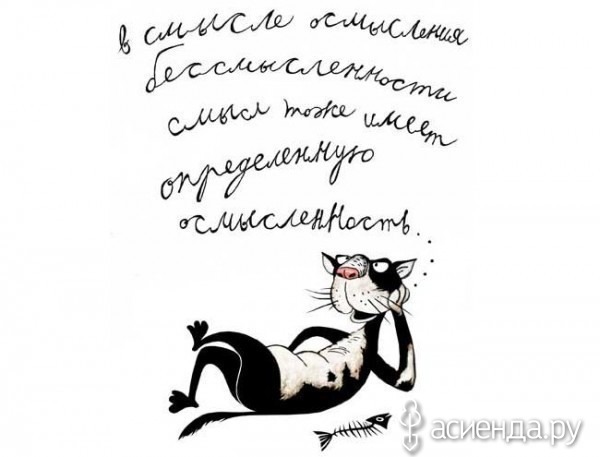 в смысле осмысления
бессмысленности
смысл тоже имеет
определенную
осмысленность...
асиенда.ру